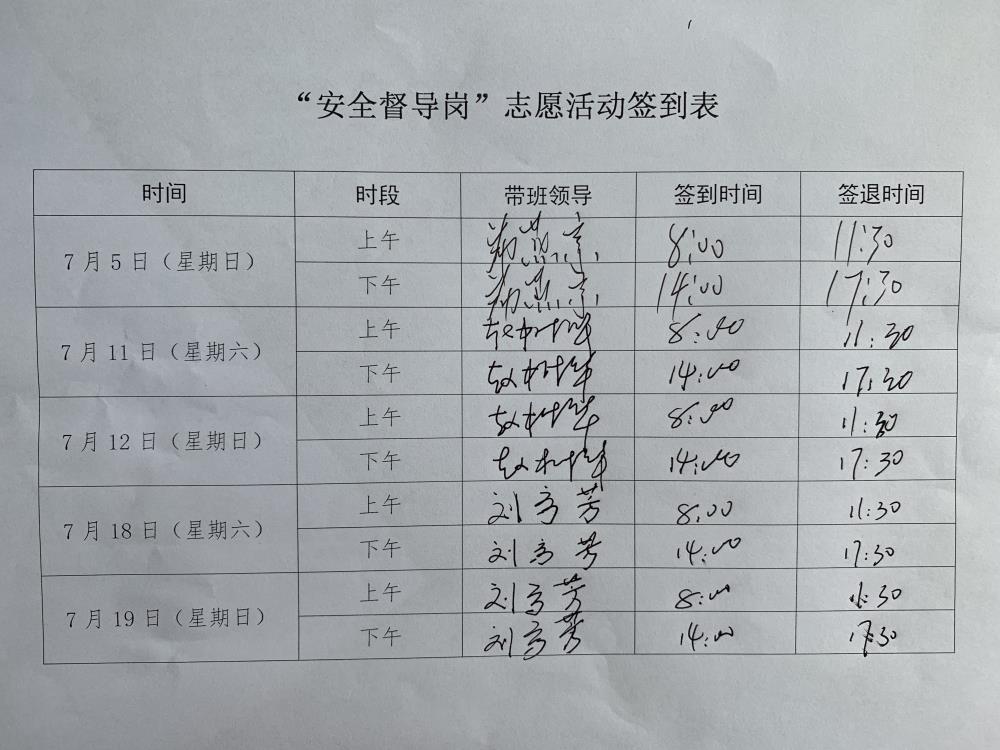 “安全督导岗”志愿活动签到表
时间 时段 带班领导 签到时间 签退时间
7月5日（星期日） 上午 8:00 11:30
下午 14:00 17:30
7月11日（星期六） 上午 8:00 11:30
下午 14:00 17:30
7月12日（星期日） 上午 8:00 11:30
下午 14:00 17:30
7月18日（星期六） 上午 刘彦芳 8:00 11:30
下午 刘彦芳 14:00 17:30
7月19日（星期日） 上午 刘彦芳 8:00 11:30
下午 刘彦芳 14:00 17:30